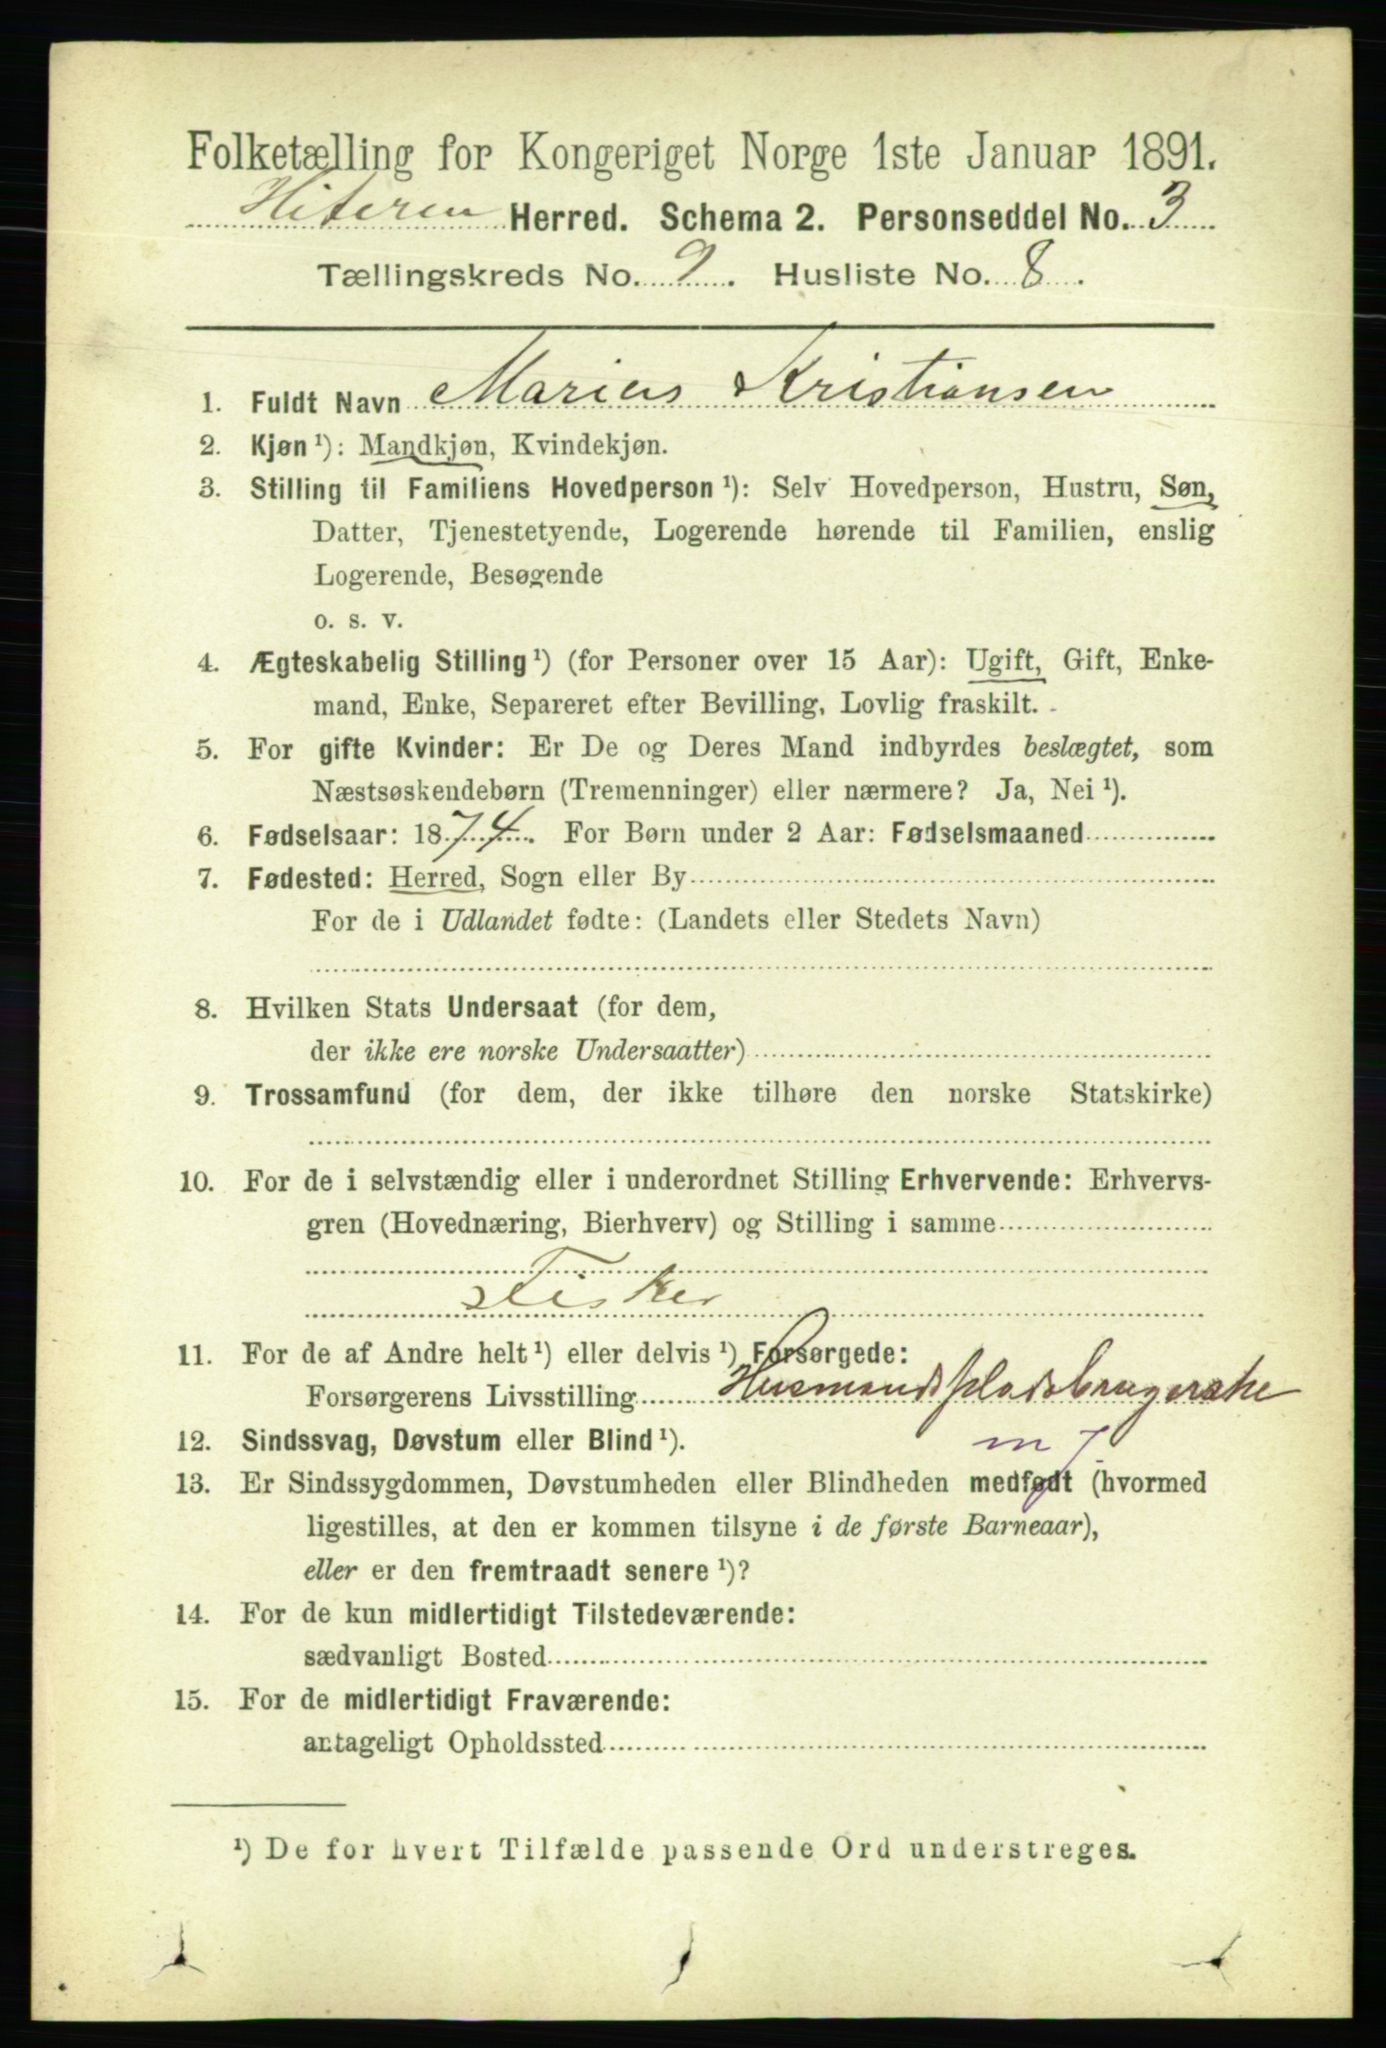 Folketælling for Kongeriget Norge 1ste Januar 1891.
Hiteren Herred. Schema 2. Personseddel No. 3
Tællingskreds No. 9. Husliste No. 8.
1. Fuldt Navn Marius Kristiansen
2. Kjøn ¹): Mandkjøn, Kvindekjøn.
3. Stilling til Familiens Hovedperson ¹): Selv Hovedperson, Hustru, Søn,
Datter, Tjenestetyende, Logerende hørende til Familien, enslig
Logerende, Besøgende
o. s. v.
4. Ægteskabelig Stilling ¹) (for Personer over 15 Aar): Ugift, Gift, Enke-
mand, Enke, Separeret efter Bevilling, Lovlig fraskilt.
5. For gifte Kvinder: Er De og Deres Mand indbyrdes beslægtet, som
Næstsøskendebørn (Tremenninger) eller nærmere? Ja, Nei ¹).
6. Fødselsaar: 1874. For Børn under 2 Aar: Fødselsmaaned
7. Fødested: Herred, Sogn eller By
For de i Udlandet fødte: (Landets eller Stedets Navn)
8. Hvilken Stats Undersaat (for dem,
der ikke ere norske Undersaatter)
9. Trossamfund (for dem, der ikke tilhøre den norske Statskirke)
10. For de i selvstændig eller i underordnet Stilling Erhvervende: Erhvervs-
gren (Hovednæring, Bierhverv) og Stilling i samme
Fisker
11. For de af Andre helt ¹) eller delvis ¹) Forsørgede:
Forsørgerens Livsstilling Husmandspladsbrugerske
12. Sindssvag, Døvstum eller Blind ¹). m
13. Er Sindssygdommen, Døvstumheden eller Blindheden medfødt (hvormed
ligestilles, at den er kommen tilsyne i de første Barneaar),
eller er den fremtraadt senere ¹)?
14. For de kun midlertidigt Tilstedeværende:
sædvanligt Bosted
15. For de midlertidigt Fraværende:
antageligt Opholdssted
¹) De for hvert Tilfælde passende Ord understreges.